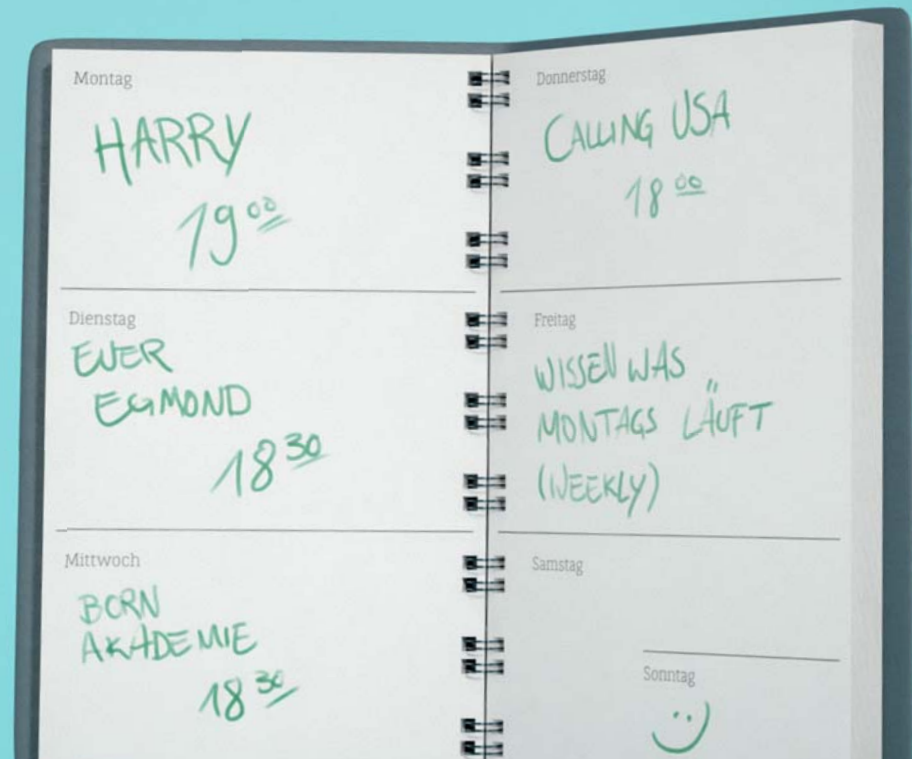 Montag
HARRY
19 00
Dienstag
EUER
EGMOND
18 30
Mittwoch
BORN
AKADEMIE
18 30
Donnerstag
CALLING USA
18 00
Freitag
WISSEN WAS
MONTAGS LÄUFT
(WEEKLY)
Samstag
Sonntag